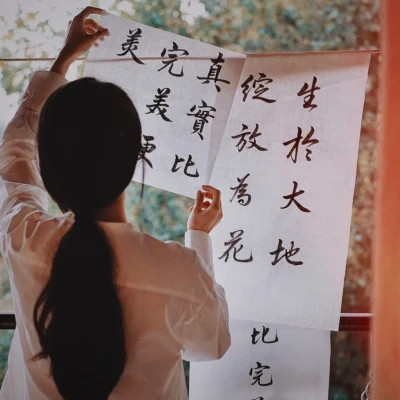 生於大地
綻放為花
真實比
完美更
美
比完